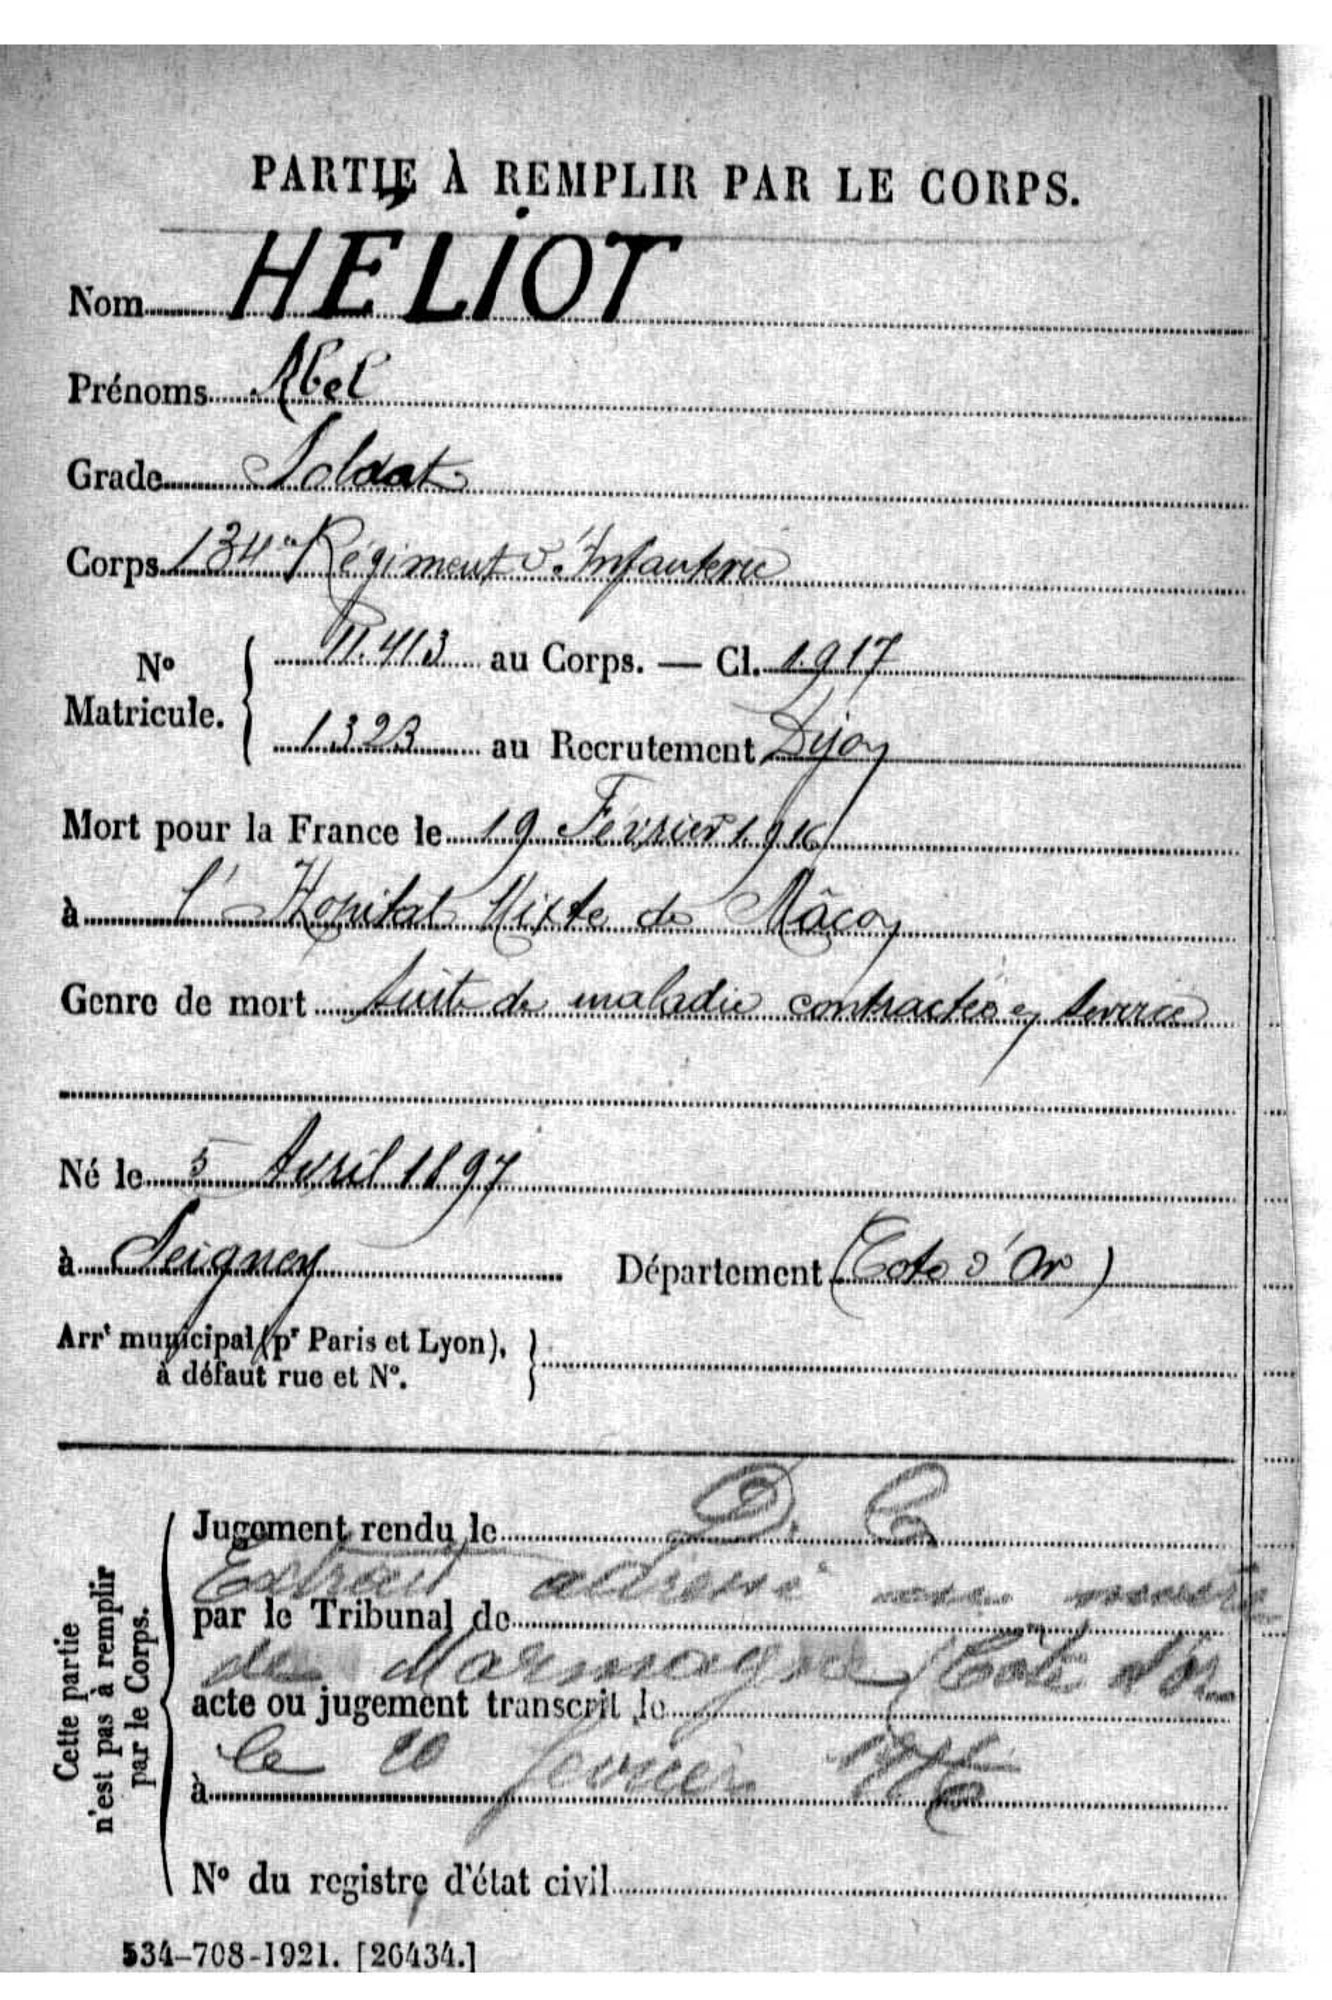 PARTIE À REMPLIR PAR LE CORPS.
Nom HÉLIOT
Prénoms Abel
Grade Soldat
Corps 134e Régiment d'Infanterie
N° Matricule. { 11.413 au Corps. — Cl. 1917
1323 au Recrutement Dijon
Mort pour la France le 19 Février 1916
à l'Hopital Mixte de Mâcon
Genre de mort suite de maladie contractée en service
Né le 5 Avril 1897
à Seigney Département (Cote d'Or)
Arrt municipal (pr Paris et Lyon), à défaut rue et N°. }
Cette partie n'est pas à remplir par le Corps.
Jugement rendu le D. C.
Extrait adressé au maire
par le Tribunal de
de Marmagne (Côte d'Or
acte ou jugement transcrit le
le 20 fevrier 1916
à
N° du registre d'état civil
534-708-1921. [26434.]